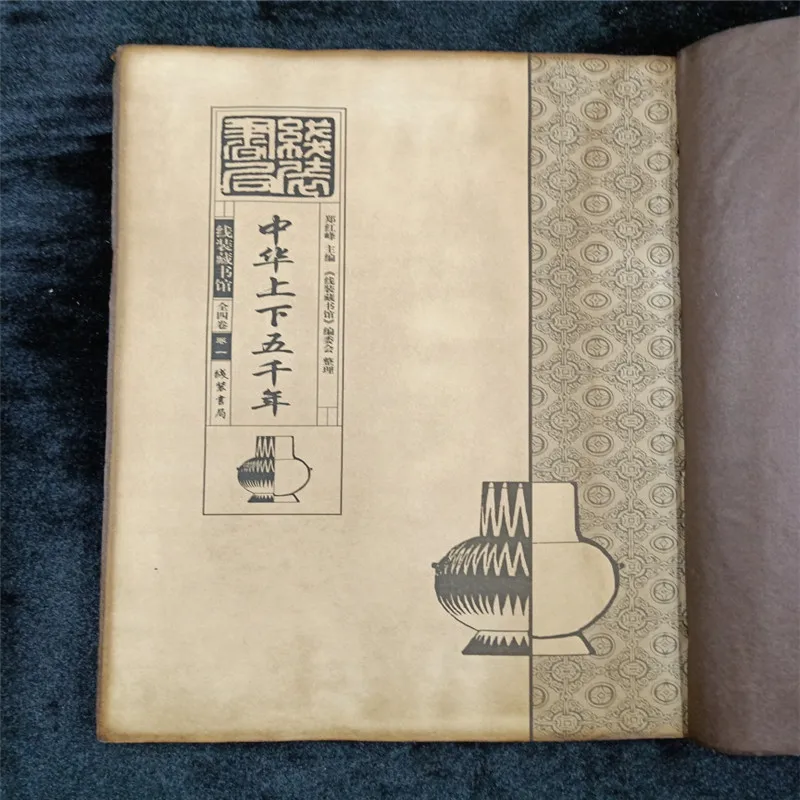 线装書局
郑红峰 主编 《线装藏书馆》编委会 整理
中华上下五千年
线装藏书馆 全四卷 卷一 线装書局